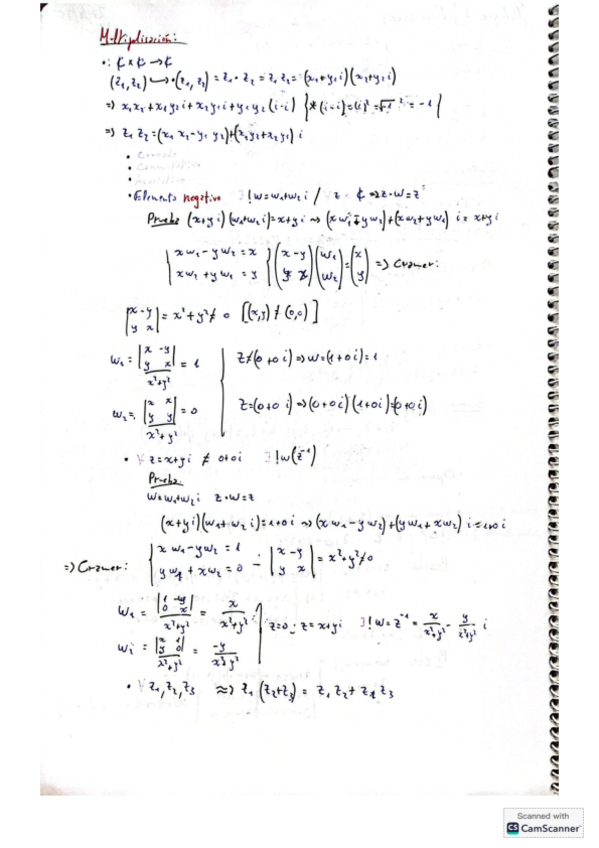 Multiplicación:
•: ₵ × ₵ → ₵
(z₁, z₂) → •(z₁, z₂) = z₁ • z₂ = z₁ z₂ = (x₁+y₁i)(x₂+y₂i)
=> x₁x₂ + x₁y₂i + x₂y₁i + y₁y₂(i·i) { *(i·i)=(i)²=√-1² = -1 {
=> z₁ z₂ = (x₁ x₂ - y₁ y₂) + (x₁y₂ + x₂y₁) i
• Cerrada
• Conmutativa
• Asociativa
• Elemento negativo ∃! w = w₁+w₂ i / z ₵ => z·w = z
Prueba (x+yi)(w₁+w₂i)=x+yi => (xw₁-yw₂)+(xw₂+yw₁) i = x+yi
{ xw₁ - yw₂ = x
xw₂ + yw₁ = y { (x -y
y x) (w₁
w₂) = (x
y) => Cramer:
|x -y
y x| = x²+y² ≠ 0 [(x,y) ≠ (0,0)]
w₁ = |x -y
y x| / x²+y² = 1
z≠(0+0i) => w=(1+0i)=1
w₂ = |x x
y y| / x²+y² = 0
z=(0+0i) => (0+0i)(1+0i)=(0+0i)
• ∀ z = x+yi ≠ 0+0i ∃! w(z⁻¹)
Prueba:
w = w₁+w₂ i z·w = z
(x+yi)(w₁+w₂ i)=1+0i => (xw₁-yw₂)+(yw₁+xw₂) i = 1+0i
=> Cramer: { xw₁ - yw₂ = 1
yw₁ + xw₂ = 0 - |x -y
y x| = x²+y² ≠ 0
w₁ = |1 -y
0 x| / x²+y² = x / x²+y²
z=0 ; z = x+yi ∃! w = z⁻¹ = x / x²+y² - y / x²+y² i
wi = |x 1
y 0| / x²+y² = -y / x²+y²
• ∀ z₁, z₂, z₃ ≈> z₁ (z₂+z₃) = z₁ z₂ + z₁ z₃
Scanned with
CS CamScanner